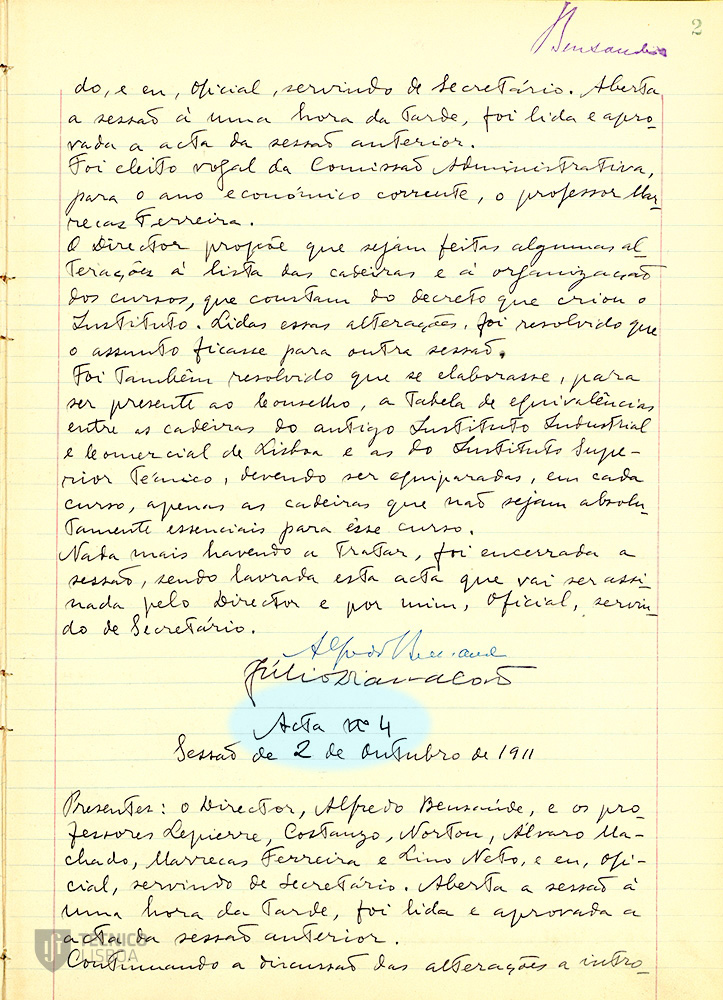 2
Bensaude
do, e eu, oficial, servindo de Secretário. Aberta
a sessão à uma hora da tarde, foi lida e apro-
vada a acta da sessão anterior.
Foi eleito vogal da Comissão Administrativa,
para o ano económico corrente, o professor Mar-
recas Ferreira.
O Director propõe que sejam feitas algumas al-
terações à lista das cadeiras e à organização
dos cursos, que constam do decreto que criou o
Instituto. Lidas essas alterações, foi resolvido que
o assunto ficasse para outra sessão.
Foi também resolvido que se elaborasse, para
ser presente ao Conselho, a tabela de equivalências
entre as cadeiras do antigo Instituto Industrial
e Comercial de Lisboa e as do Instituto Supe-
rior Técnico, devendo ser equiparadas, em cada
curso, apenas as cadeiras que não sejam absolu-
tamente essenciais para êsse curso.
Nada mais havendo a tratar, foi encerrada a
sessão, sendo lavrada esta acta que vai ser assi-
nada pelo Director e por mim, Oficial, servin-
do de Secretário.
Alfredo Bensaude
Júlio
Acta nº 4
Sessão de 2 de Outubro de 1911
Presentes: o Director, Alfredo Bensaúde, e os pro-
fessores Lepierre, Costanzo, Norton, Álvaro Ma-
chado, Marrecas Ferreira e Lino Neto, e eu, ofi-
cial, servindo de Secretário. Aberta a sessão à
uma hora da tarde, foi lida e aprovada a
acta da sessão anterior.
Continuando a discussão das alterações a intro-
TÉCNICO
LISBOA